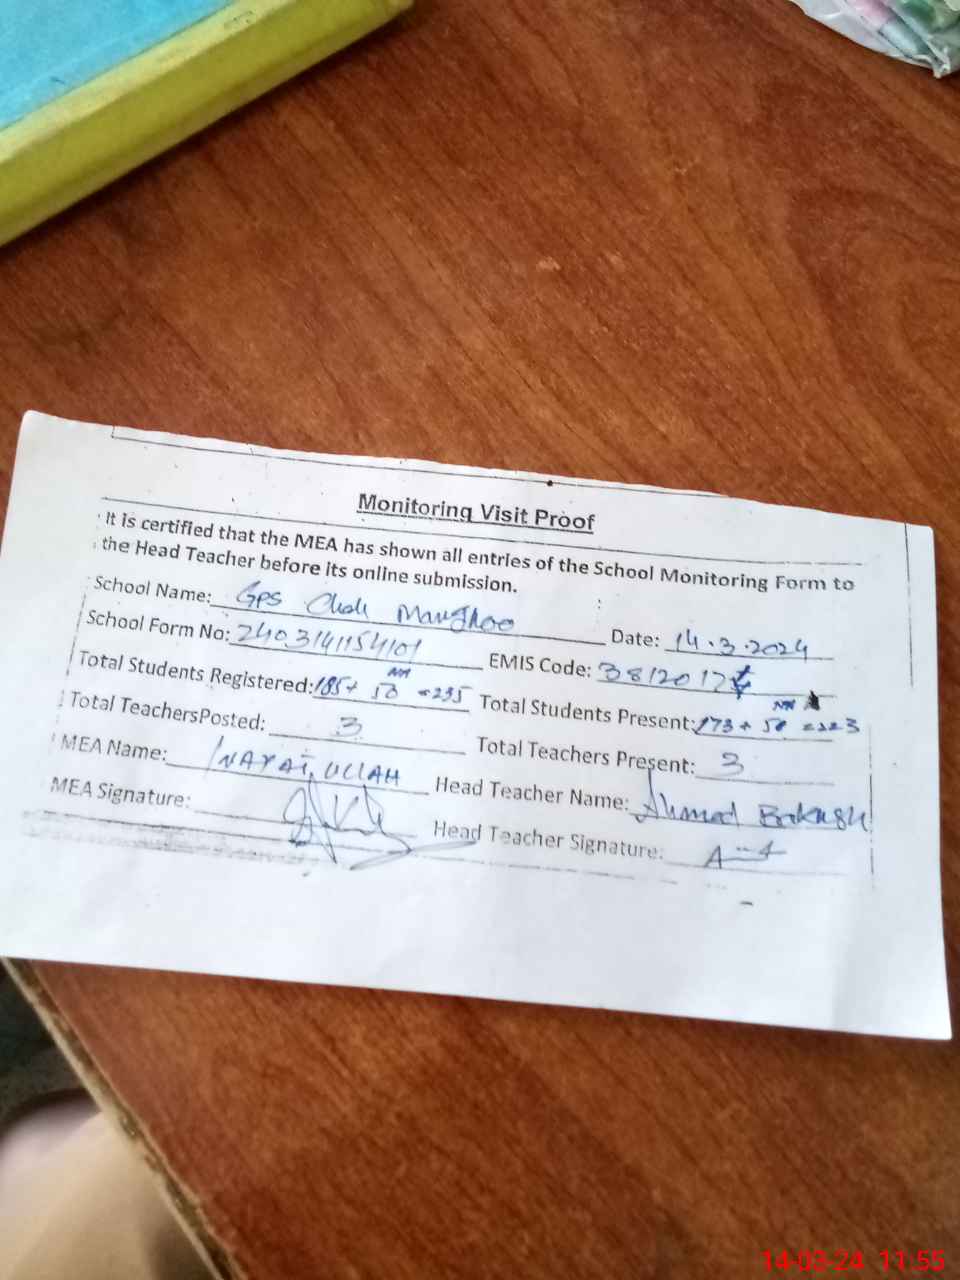 Monitoring Visit Proof
It is certified that the MEA has shown all entries of the School Monitoring Form to
the Head Teacher before its online submission.
School Name: GPS Chak Manghoo Date: 14.3.2024
School Form No: 2403141154101 EMIS Code: 3812017
Total Students Registered: 185+ 50 =235 Total Students Present: 173 + 50 =223
Total TeachersPosted: 3 Total Teachers Present: 3
MEA Name: INAYAT ULLAH Head Teacher Name: Ahmad Bakhsh
MEA Signature: Head Teacher Signature:
14-03-24 11:55